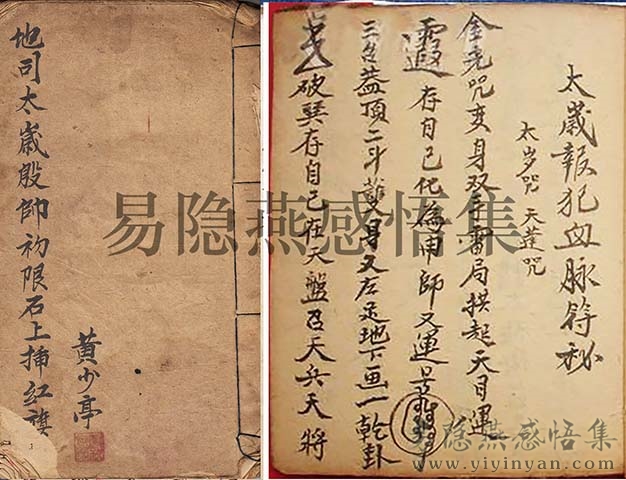 地司太歲殷帥初限石上插紅旗
黃少亭
太歲報犯血脉符秘
太岁咒 天蓬咒
金光咒变身双手雷局拱起天目運
存自己化為甫師又運
三台蓋頂二斗護身又左足地下画一乾卦
破㷼存自己在天盤召天兵天将
易隐燕感悟集
隐燕感悟集
www.yiyinyan.com